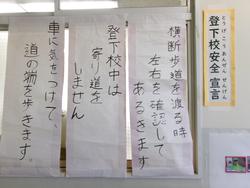 とうげこうあんぜん せんげん
登下校安全 宣言
横断歩道を渡る時
左右を確認して
あるきます
登下校中は
寄り道を
しません
車に気をつけて
道の端を歩きます